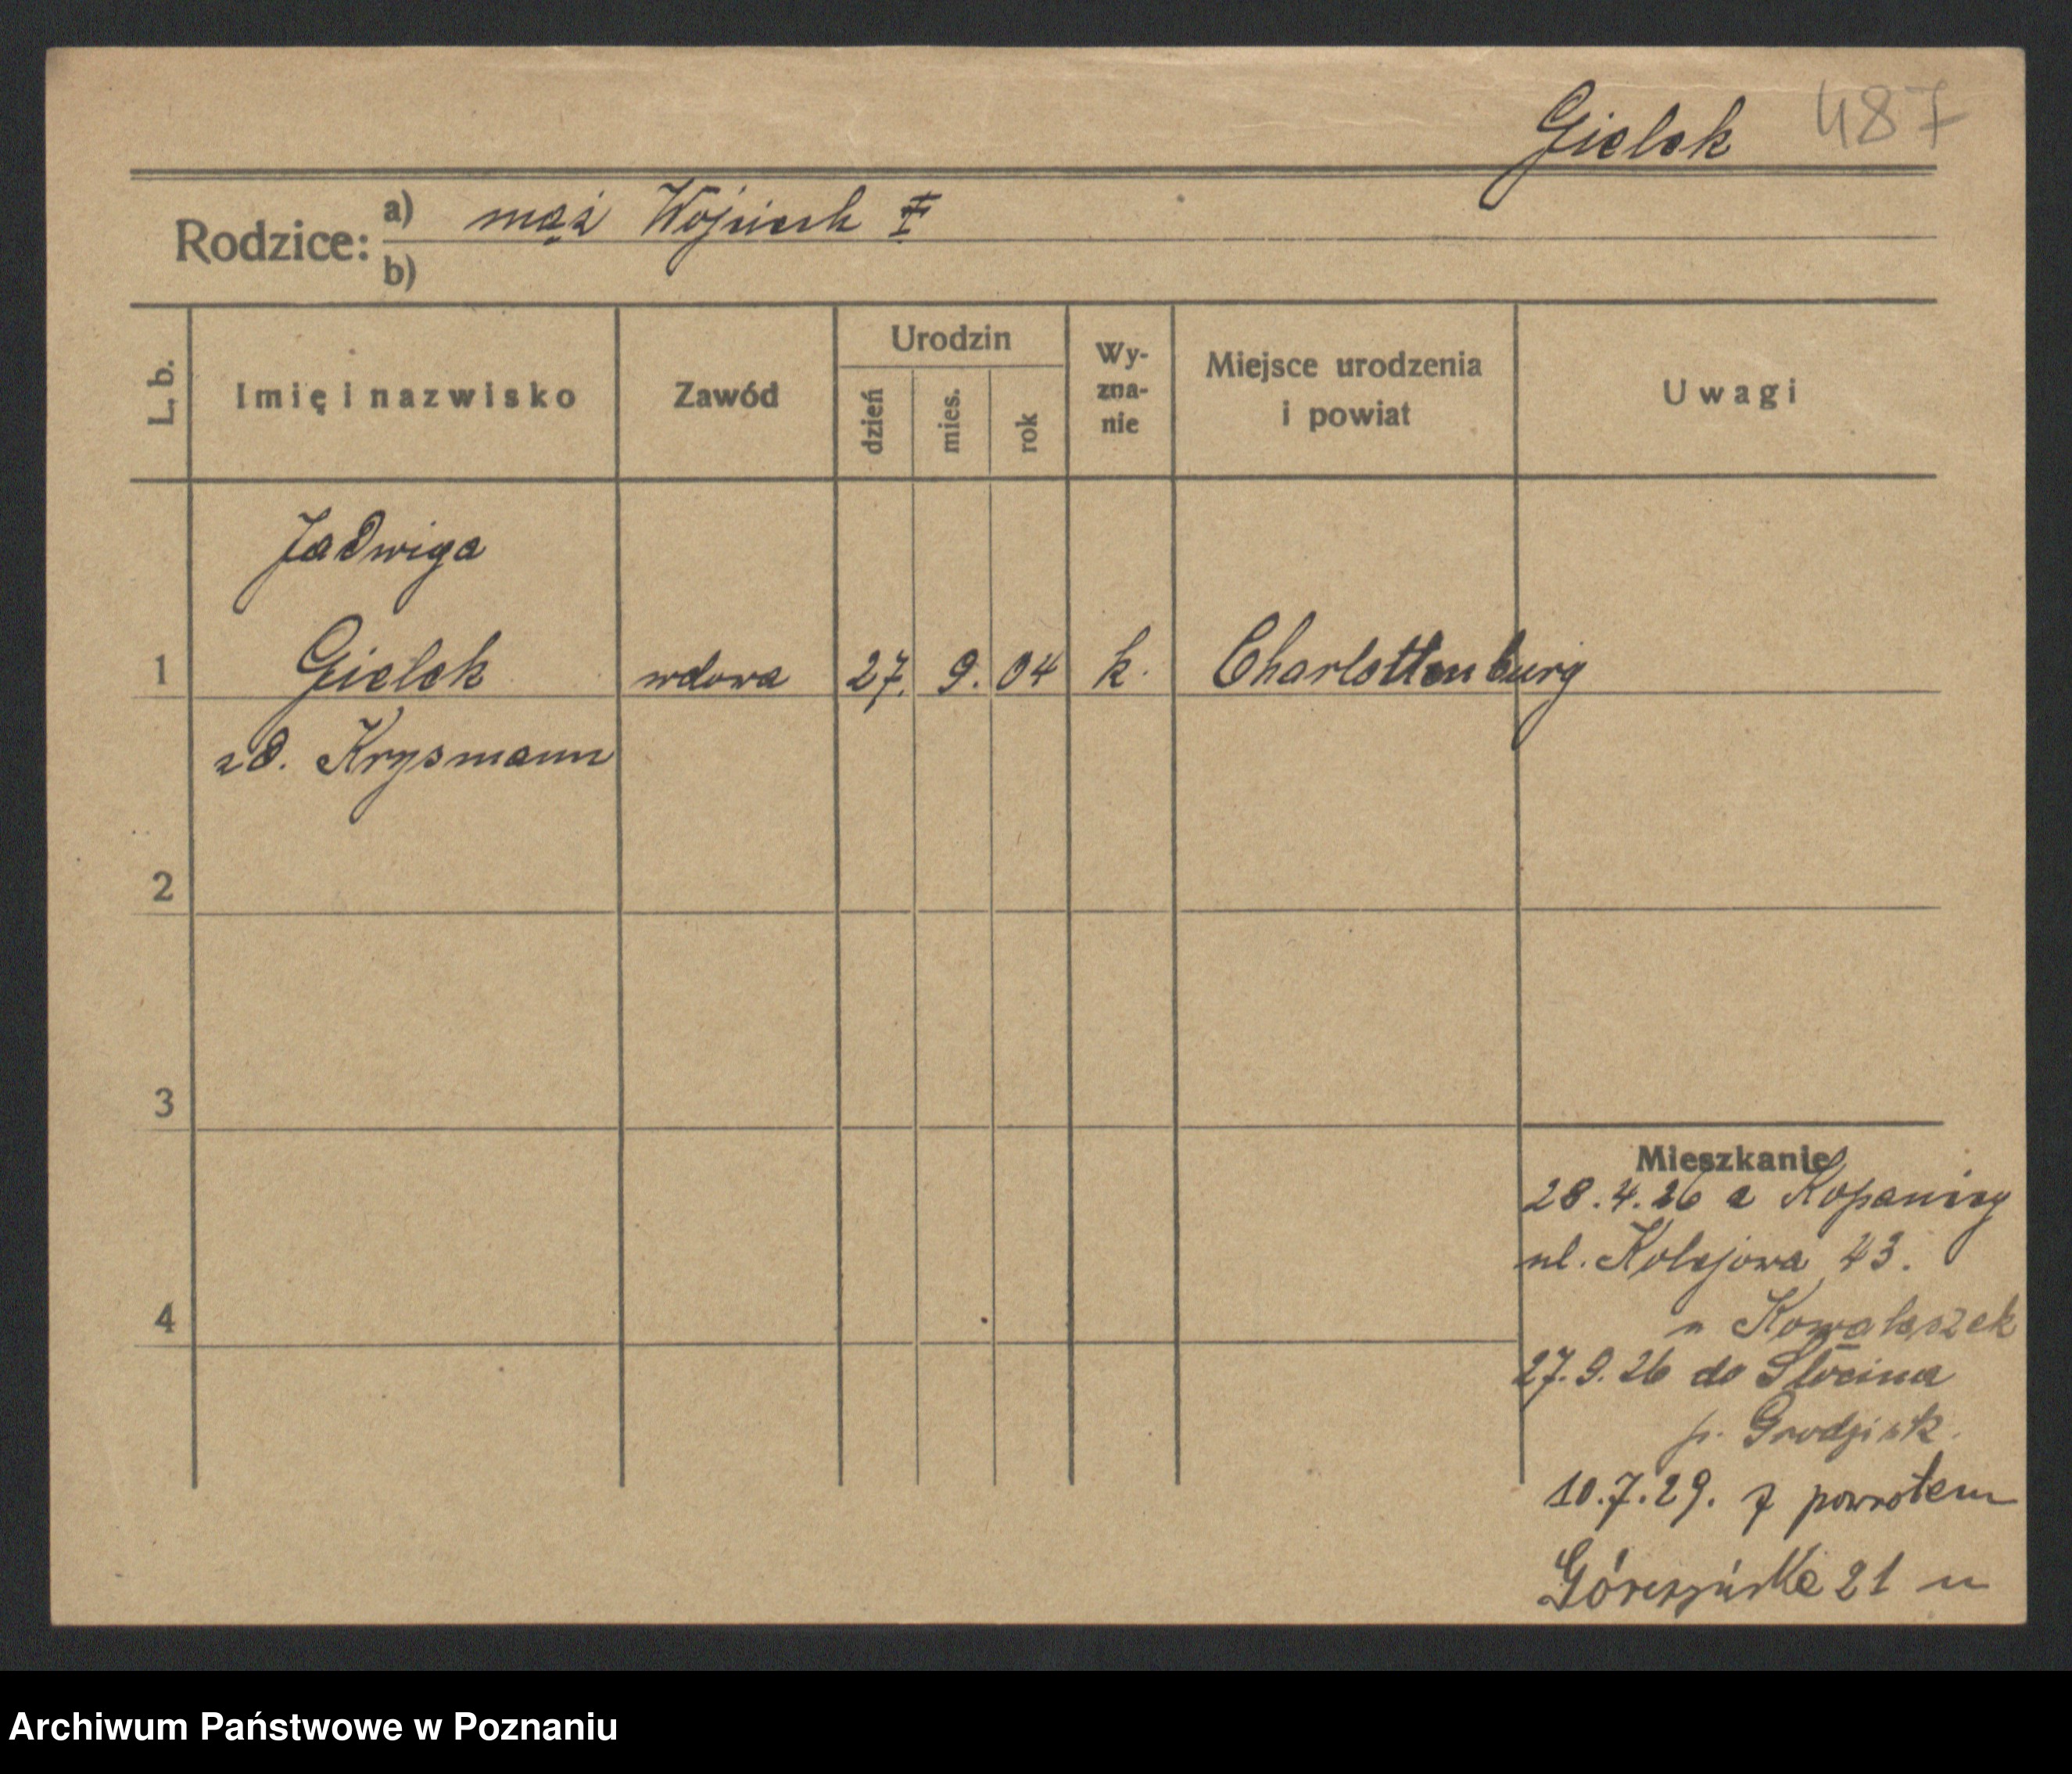 Gielek 487
Rodzice: a) mąż Wojciech I
b)
L. b.
Imię i nazwisko
Zawód
Urodzin
dzień
mies.
rok
Wy-
zna-
nie
Miejsce urodzenia
i powiat
Uwagi
Jadwiga
1 Gielek wdowa 27. 9. 04 k. Charlottenburg
zd. Krysmann
2
3
4
Mieszkanie
28.4.26 z Kopanicy
ul. Kolejowa 43.
n Kowalaszek
27.9.26 do Słocina
p. Grodzisk.
10.7.29. z powrotem
21 u
Archiwum Państwowe w Poznaniu